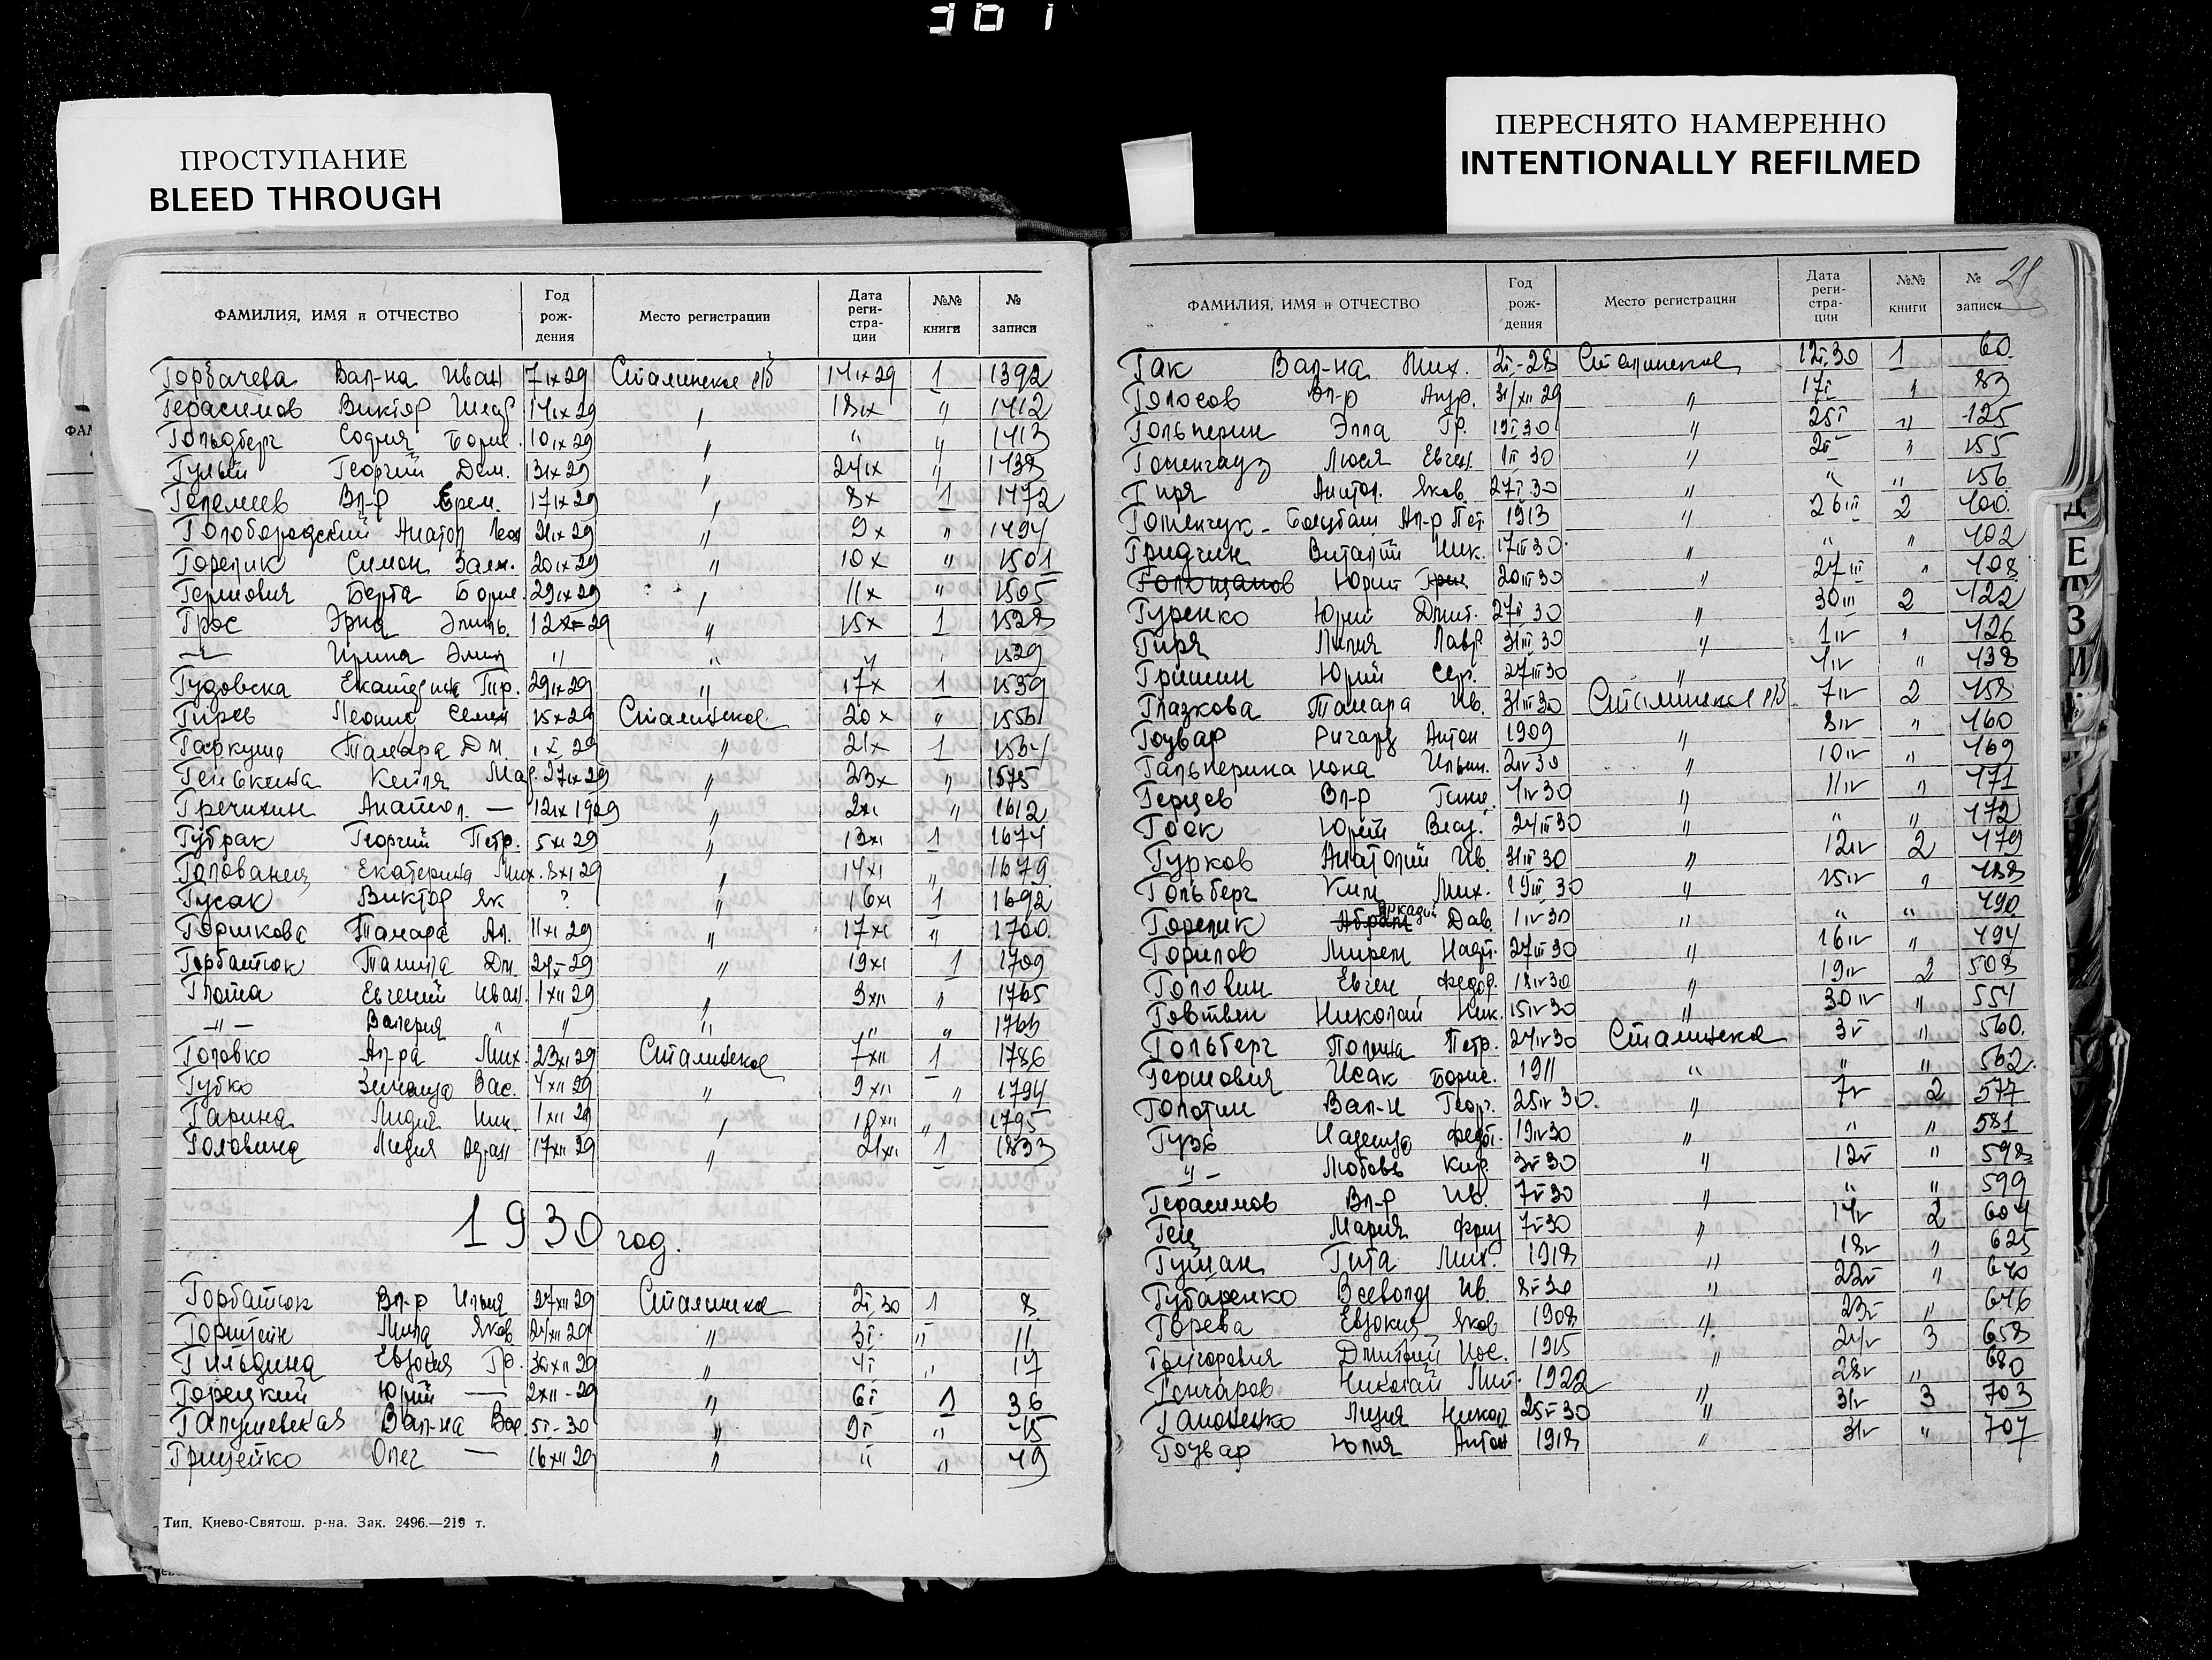 301
ПРОСТУПАНИЕ
BLEED THROUGH
ПЕРЕСНЯТО НАМЕРЕННО
INTENTIONALLY REFILMED
ФАМИЛИЯ, ИМЯ и ОТЧЕСТВО Год рождения Место регистрации Дата регистрации №№ книги № записи
Горбачева Вал-на Иван 7 IX 29 Сталинское 14 IX 29 1 1392
Герасимов Виктор 14 IX 29 " 18 IX " 1412
Гольдберг София Борис. 10 IX 29 " " " 1413
Гулый Георгий Дем. 13 IX 29 " 24 IX " 1438
Вл-р Ерем. 17 IX 29 " 8 X 1 1472
Голобородский Анатол 21 IX 29 " 9 X " 1494
Горелик Симон Залм. 20 IX 29 " 10 X " 1501
Гершович Берта Борис. 29 IX 29 " 11 X " 1505
Грос Эрна Эмиль. " 15 X 1 1528
—"— Ирина Эмил " " " " 1529
Гудовска Екатерина 29 IX 29 " 17 X 1 1539
Гирев Леонид Семен 15 X 29 Сталинское 20 X " 1556
Гаркуша Тамара Дм " 21 X 1 1564
27 IX 29 " 23 X " 1575
Гречихин Анатол. — 12 IX 1929 " 2 XI " 1612
Губрак Георгий Петр. 5 XI 29 " 13 XI 1 1674
Голованец Екатерина Мих. 8 XI 29 " 14 XI " 1679
Гусак Виктор Як ? " 16 XI 1 1692
Горшкова Тамара Ал. 11 XI 29 " 17 XI " 1700
Горбатюк Тамила Дм. " 19 XI 1 1709
Глота Евгений Иван. 1 XII 29 " 3 XII " 1765
—"— Валерия " " " " " 1766
Головко Ал-ра Мих. 23 XI 29 Сталинское 7 XII 1 1786
Губко Зинаида Вас. 4 XII 29 " 9 XII " 1794
Гарина Лидия Ник. 1 XII 29 " 10 XII " 1795
Головина Лидия 17 XII 29 " 21 XII 1 1833
1930 год.
Горбатюк Вл-р Илья 27 XII 29 Сталинско 2 I 30 1 8
Горштейн Мила Яков 24 XII 29 " 3 I " 11
Гильдина Евдокия Гр. " 4 I " 17
Горецкий Юрий — 2 XII - 29 " 6 I 1 36
Галушевская Вал-на 5 I - 30 " 9 I " 45
Грищенко Олег — 16 XII 29 " " " 49
Тип. Киево-Святош. р-на. Зак. 2496.—219 т.
ФАМИЛИЯ, ИМЯ и ОТЧЕСТВО Год рождения Место регистрации Дата регистрации №№ книги № записи
Гак Вал-на Мих. Сталинское 12 I 30 1 60
Голосов Вл-р Андр. 31/XII 29 " 17 I " 83
Гольперин Элла Гр. 19 I 30 " 25 I " 125
Люся Евген. 1 II 30 " " 155
Гиря Анатол. Яков. 27 I 30 " " " 156
Ал-р Пет. 1913 " 26 III 2 400
Гридчин Виталий Ник. 17 III 30 " " " 402
Голощапов Юрий 20 III 30 " 27 III " 408
Гуренко Юрий Дмит. " 30 III 2 422
Гиря Лилия Лавр 31 III 30 " 1 IV " 426
Гришин Юрий Сер. 27 III 30 " " 438
Глазкова Тамара Ив. 31 III 30 Сталинское 7 IV 2 458
Гоувар Ричард Антон 1909 " 8 IV " 460
Гальперина Нона Ильин. 2 IV 30 " 10 IV " 469
Герцев Вл-р " 11 IV " 471
Гоок Юрий Влад. 24 III 30 " " " 472
Гурков Анатолий Ив. 31 III 30 " 12 IV 2 479
Гольберг Ким Мих. 19 III 30 " 15 IV " 488
Горелик Аркадий Дав. 1 IV 30 " " " 490
Горилов 27 III 30 " 16 IV " 494
Головин Евген Федор. 18 IV 30 " 19 IV 2 508
Говтвен Николай Ник. 15 IV 30 " 30 IV " 554
Гольберг Полина Петр. 24 IV 30 Сталинско 3 V " 560
Гершович Исак Борис. 1911 " " " 562.
Голотин Вал-н Георг. 25 IV 30. " 7 V 2 577
Гузь Надежда Федот. 19 IV 30 " " " 581
—"— Любовь Кир. 3 V 30 " 12 V " 598
Герасимов Вл-р Ив. 7 V 30 " " " 599
Гец Мария 7 V 30 " 14 V 2 604
Гуйман Гита Мих. 1918 " 18 V " 625
Губаренко Всеволод Ив. 8 V 30 " 22 V " 640
Горева Евдокия Яков 1908 " 23 V " 646
Григорович Дмитрий Иос. 1915 " 24 V 3 658
Гончаров Николай 1922 28 V " 680
Гапоненко Лидия Никол 25 V 30 " 31 V 3 703
Гоувар Юлия Антон 1918 " 31 V " 707